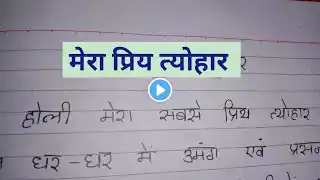 मेरा प्रिय त्योहार
होली मेरा सबसे प्रिय त्योहार
घर-घर में उमंग एवं प्रसन